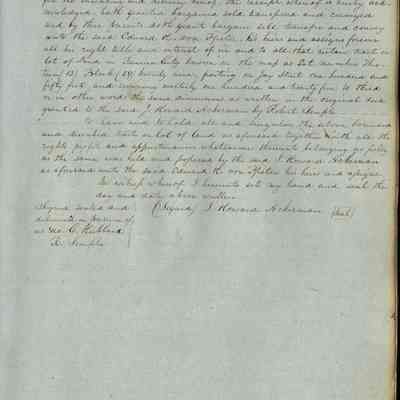 the receipt whereof is hereby ack-
nowledged, hath granted bargained sold transfered and conveyed
and by these presents doth grant bargain sell transfer and convey
unto the said Edward H. von Pfister, his heirs and assigns forever
all his right title and interest of in and to all that certain tract or
lot of land in Benicia City known on the map as Lot number Thir-
teen (13) Block (29) twenty nine, fronting on Jay Street one hundred and
fifty feet and running westerly one hundred and twenty five
or in other words the same dimensions as written in the original deed
granted to the said J. Howard Ackerman by Robert Semple
to have and to hold all and singular the above bargained
and described tract or lot of land as aforesaid together with all the
rights profits and appurtenances whatsoever thereunto belonging as fully
as the same was held and possessed by the said J. Howard Ackerman
as aforesaid unto the said Edward H. von Pfister his heirs and assigns.
In witness whereof I hereunto set my hand and seal the
day and date above written
Signed sealed and (Signed) J. Howard Ackerman (Seal)
delivered in presence of
C. Hubbard
R. Semple